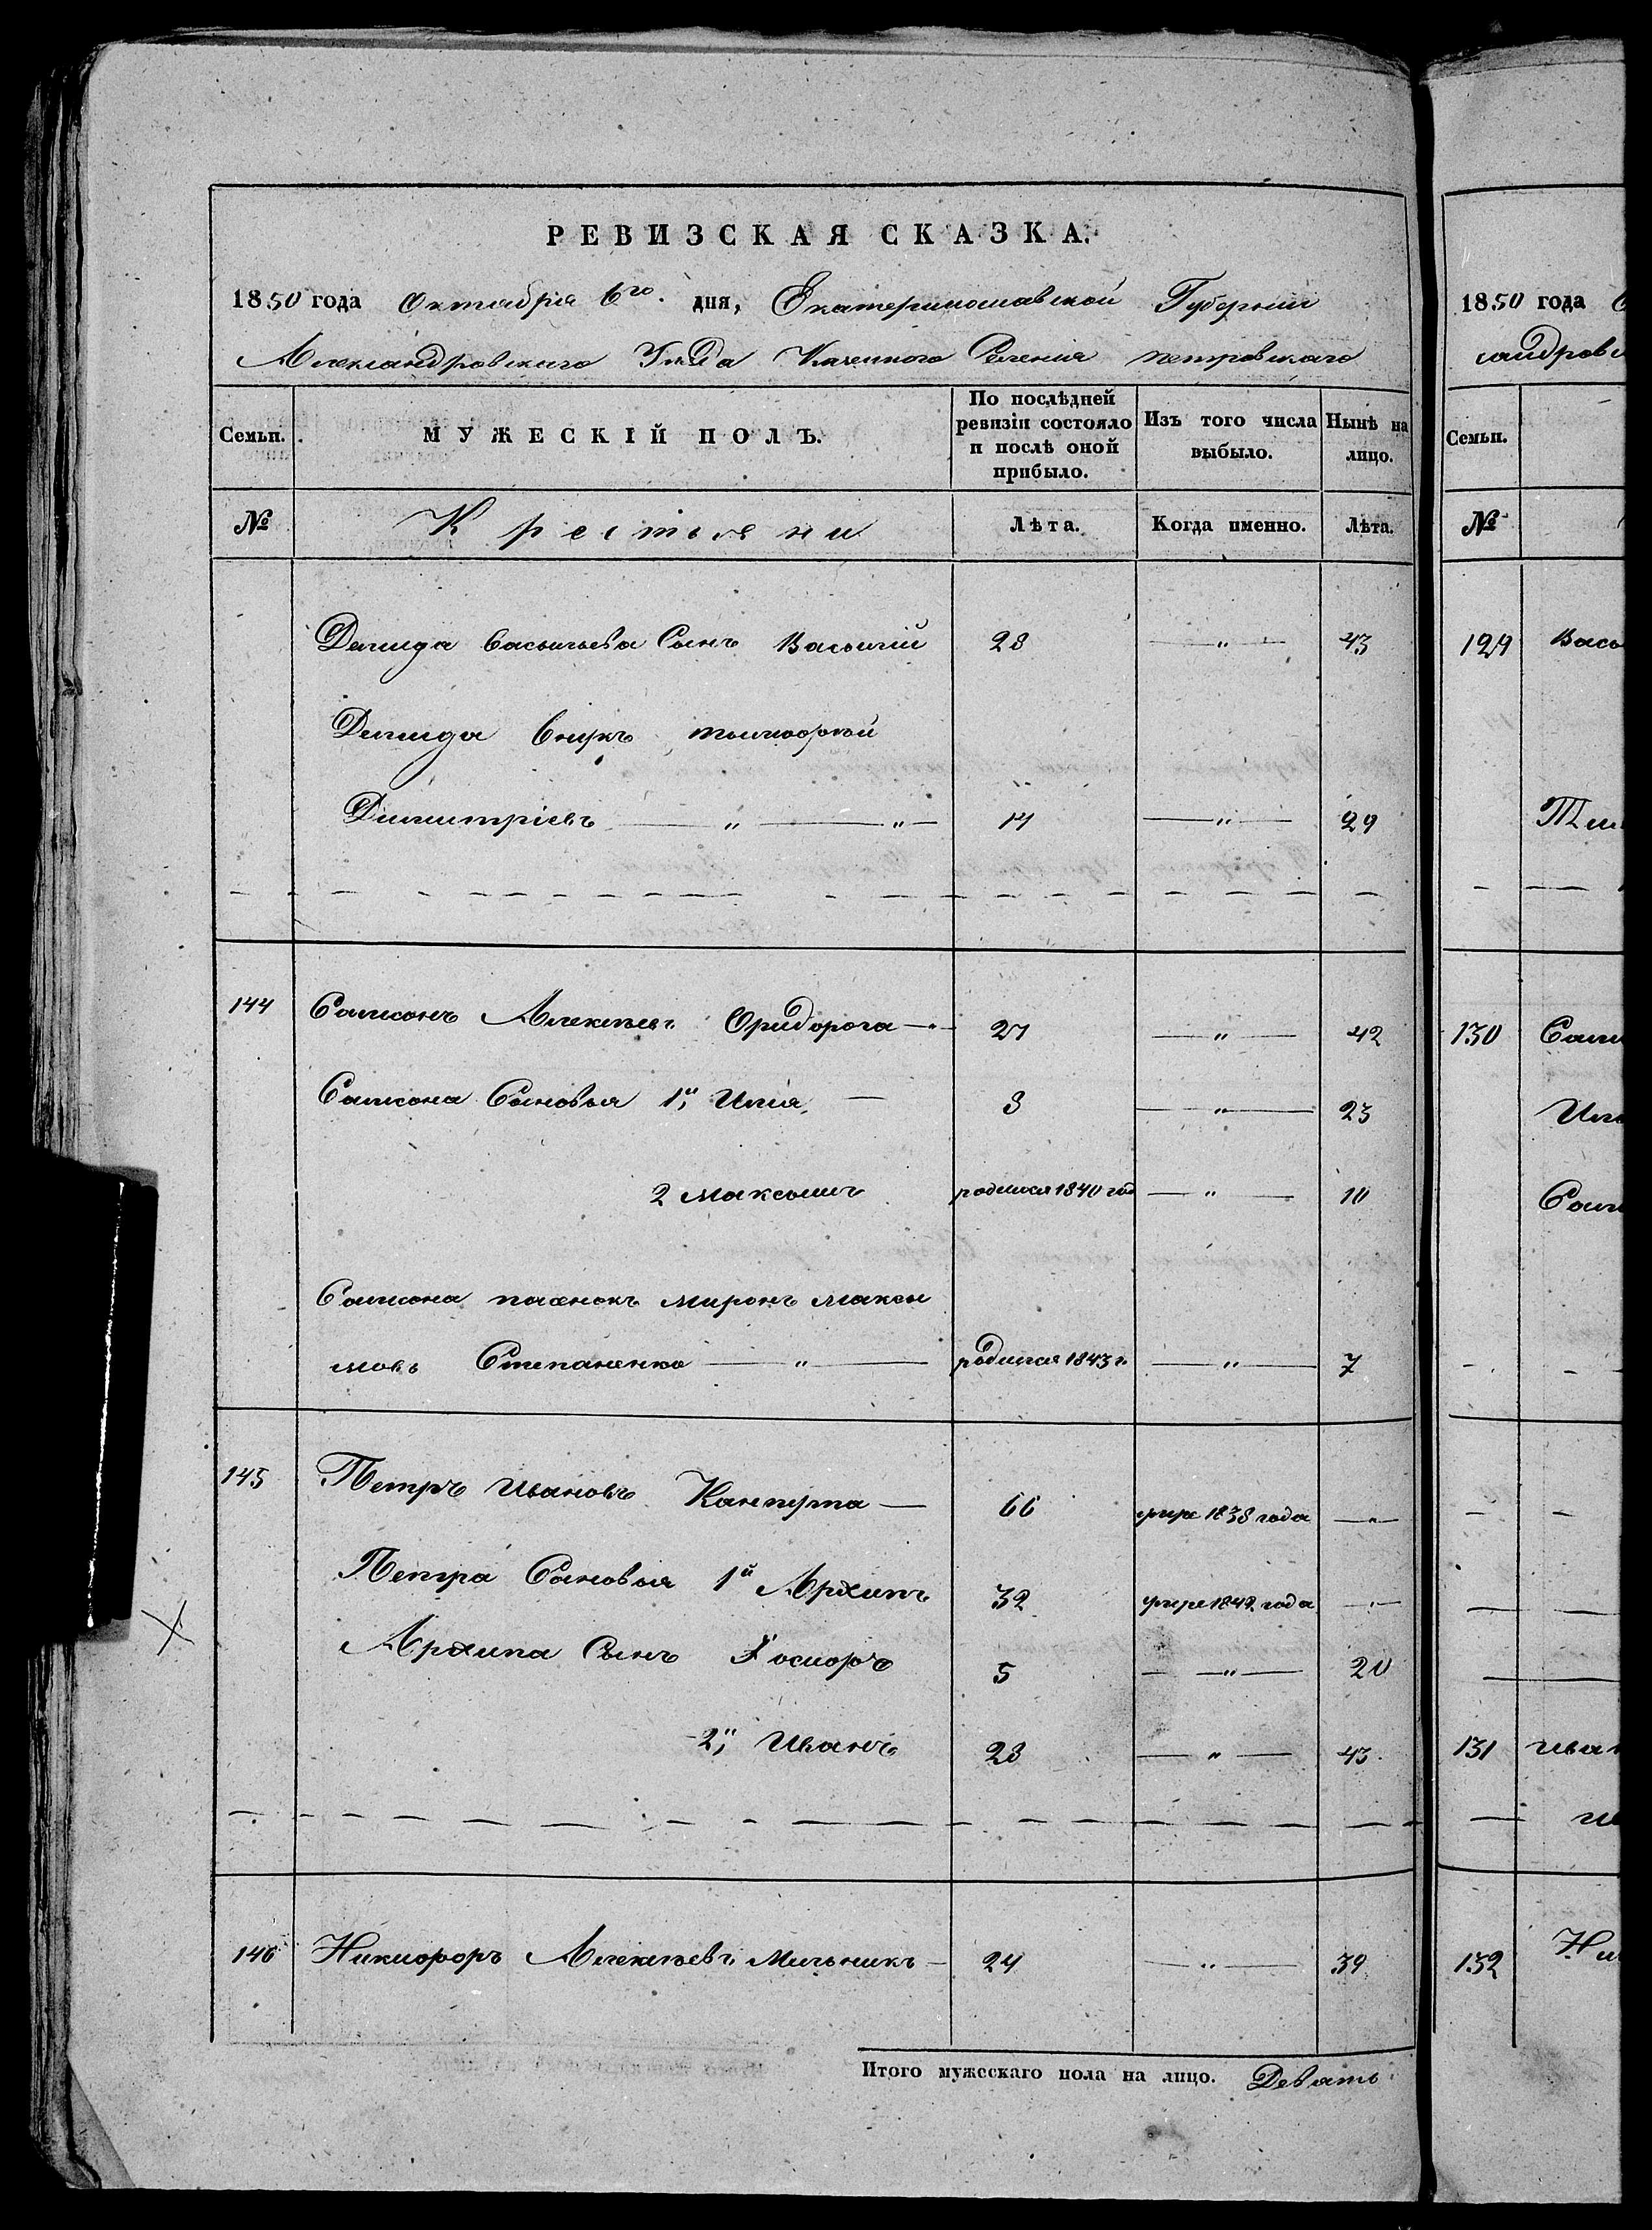 РЕВИЗСКАЯ СКАЗКА.
1850 года Октября 6го. дня, Екатеринославской Губернии
Александровскаго Уезда Казенного Селения петровскаго
Семьи. МУЖЕСКІЙ ПОЛЪ. По послѣдней ревизіи состояло и послѣ оной прибыло. Изъ того числа выбыло. Нынѣ на лицо.
№ Крестьяни Лѣта. Когда именно. Лѣта.
Демида Васильева Сынъ Василий 28 — " — 43
Демида Внукъ тимофей
Димитріевъ — " — " — 14 — " — 29
144 Самсонъ Алексѣевъ Ориدорога — 27 — " — 42
Самсона Сыновья 1й, Илія, — 8 — " — 23
2 Максимъ родился 1840 год — " — 10
Самсона пасенокъ Миронъ Макси
мовъ Степаненко — " — родился 1843 г. — " — 7
145 Петръ Ивановъ Канпура — 66 умре 1838 года — " —
Петра Сыновья 1й Архипъ 32 умре 1849 года — " —
Архипа Сынъ 5 — " — 20
2й, Иванъ 28 — " — 43
146 Никифоръ Алексѣевъ Мельникъ — 24 — " — 39
Итого мужескаго пола на лицо. Девять
1850 года
сандровс
Семьи.
№
129 Васи
Тим
130 Самс
Иль
Самс
131 иван
132 Ник